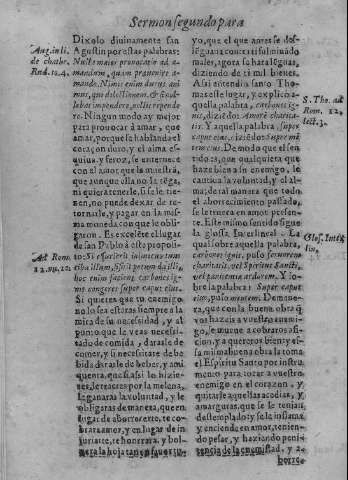 Sermon segundo para
Dixolo diuinamente san
Agustin por estas palabras:
Nulla maior prouocatio ad a-
mandum, quam præuenire a-
mando. Nimis enim durus ani
mus, qui dilectionem, & si nole
labat impendere, nolit repende
re. Ningun modo ay mejor
para prouocar à amar, que
amar, porque seria hablando el co-
raçon duro, y el alma es-
quiua, y feroz, se enternece
con el amor que la muestra,
que aunque ella no la tēga,
ni quiera tenerla, si se le tie-
nen, no puede dexar de re-
tornarle, y pagar en la mes-
ma moneda con que le obli-
garon. Es excelēte el lugar
de san Pablo à este proposi-
to: Si esurierit inimicus tuus
ciba illum, si sitit potum da illi,
hoc enim faciens carbones ig-
nis congeres super caput eius.
Si quieres que tu enemigo
no lo sea estaràs siempre à la
mira de su necessidad, y al
punto que le veas necessi-
tado de comida, darasle de
comer, y si necessitare de be-
bida darasle de beber, y ami
quenta, que si assi le hizie-
res, le traeràs por la melena,
le ganaràs la voluntad, y le
obligaràs de manera, que en
lugar de aborrecerte, te co-
brarà amor, y en lugar de in-
juriarte, te honrrarà, y bol-
uerà la hoja tan en fauor tu-
yo, que el que antes se des-
leguaua contra ti solo à
males, agora se harà leguas,
diziendo de ti mil bienes.
Assi entendio santo Tho-
mas este lugar, y explica a-
quella palabra, carbones ig-
nis, diziēdo: Amore charita-
tis. Y aquella palabra, super
caput eius, diziēdo: Super mē-
tem eius. De modo que el sen-
tido es, que qualquiera que
haze bien à su enemigo, le
cautiua la voluntad, y el al-
ma; de tal manera que todo
el aborrecimiento passado,
se le trueca en amor presen-
te. Este mismo sentido sigue
la glossa Interlineal. La
qual sobre aquella palabra,
carbones ignis, puso feruorem
charitatis, vel Spiritus Sancti,
vel pœnitentiæ ardorem. Y so-
bre la palabra: Super caput
eius, puso mentem. Demane-
ra, que con la buena obra q̄
vos hazeis à vuestro enemi-
go, le mueue à cobraros afi-
cion, y à quereros bien y es-
sa misma buena obra la toma
el Espiritu Santo por instru-
mento para tocar à vuestro
enemigo en el coraçon, y
quitarle aquellas acedias, y
amarguras, que se le tenian
destemplado y se le inflama
y enciende en amor, tenien-
do pesar, y haziendo peni-
tencia de la enemistad, y a-
borre-
Aug. in li.
de cathec.
Rud. c. 4.
Ad Rom.
12. nu. 20.
S. Tho. ad
Rom. 12.
lect. 3.
Glos. Inter
lin.